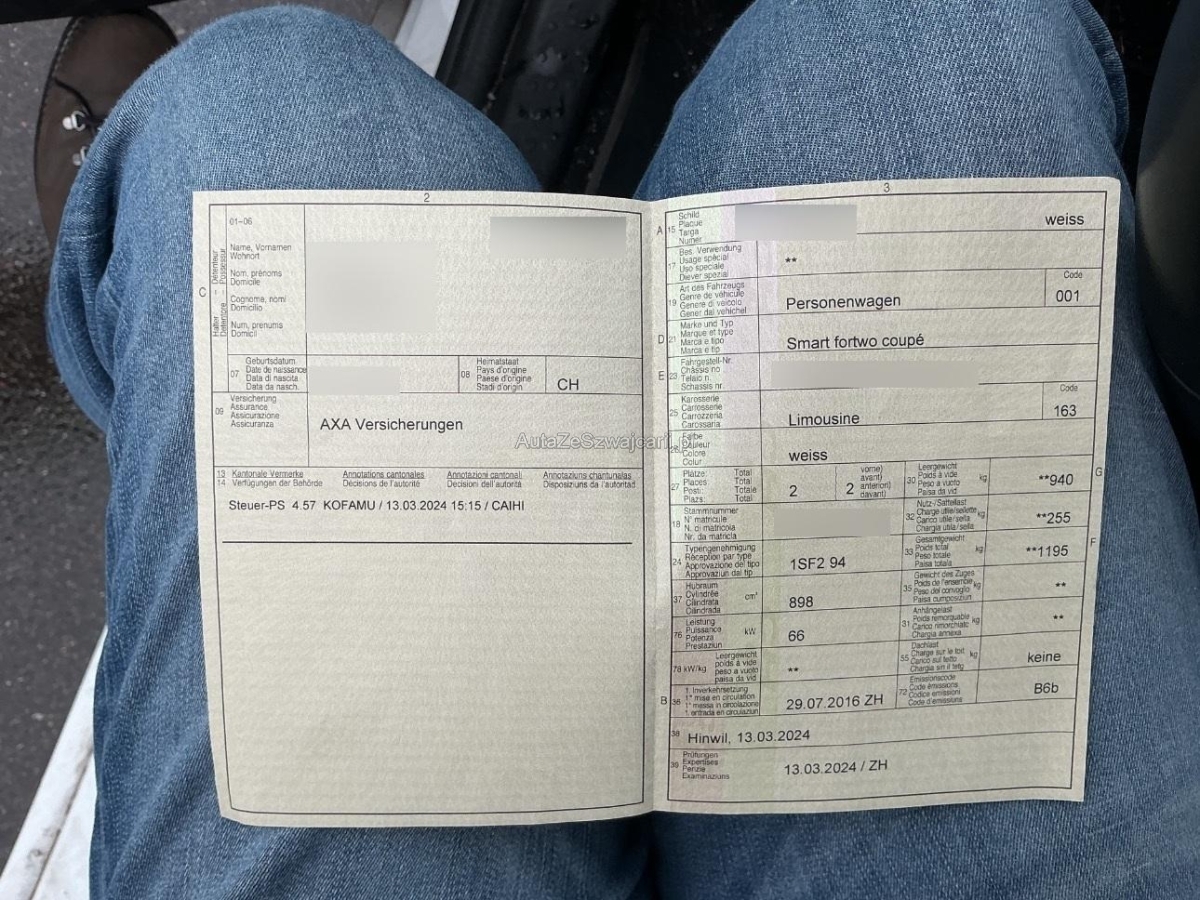 2
01-06
C
Halter Détenteur
Detentore Possessur
Name, Vornamen
Wohnort
Nom, prénoms
Domicile
Cognome, nomi
Domicilio
Num, prenums
Domicil
07
Geburtsdatum
Date de naissance
Data di nascita
Data da nasch.
08
Heimatstaat
Pays d'origine
Paese d'origine
Stadi d'origin
CH
09
Versicherung
Assurance
Assicurazione
Assicuranza
AXA Versicherungen
13 Kantonale Vermerke Annotations cantonales Annotazioni cantonali Annotaziuns chantunalas
14 Verfügungen der Behörde Décisions de l'autorité Decisioni dell'autorità Disposiziuns da l'autoritad
Steuer-PS 4.57 KOFAMU / 13.03.2024 15:15 / CAIHI
3
A 15
Schild
Plaque
Targa
Numer
weiss
17
Bes. Verwendung
Usage spécial
Uso speciale
Diever spezial
**
19
Art des Fahrzeugs
Genre de véhicule
Genere di veicolo
Gener dal vehichel
Personenwagen
Code
001
D 21
Marke und Typ
Marque et type
Marca e tipo
Marca e tip
Smart fortwo coupé
E 23
Fahrgestell-Nr.
Châssis no
Telaio n.
Schassis nr.
25
Karosserie
Carrosserie
Carrozzeria
Carossaria
Limousine
Code
163
AutaZeSzwajcarii.p
26
Farbe
Couleur
Colore
Colur
weiss
27
Plätze: Total
Places: Total
Posti: Totale
Plazs: Total
2
2
vorne)
avant)
anteriori)
davant)
30
Leergewicht
Poids à vide
Peso a vuoto
Paisa da vid
kg
**940
G
18
Stammnummer
N° matricule
N. di matricola
Nr. da matricla
32
Nutz-/Sattellast
Charge utile/sellette
Carico utile/sella
Chargia utila/sella
kg
**255
24
Typengenehmigung
Réception par type
Approvazione del tipo
Approvaziun dal tip
1SF2 94
33
Gesamtgewicht
Poids total
Peso totale
Paisa totala
kg
**1195
F
37
Hubraum
Cylindrée
Cilindrata
Cilindrada
cm³
898
35
Gewicht des Zuges
Poids de l'ensemble
Peso del convoglio
Paisa cumposiziun
kg
**
76
Leistung
Puissance
Potenza
Prestaziun
kW
66
31
Anhängelast
Poids remorquable
Carico rimorchiato
Chargia annexa
kg
**
78 kW/kg
Leergewicht
poids à vide
peso a vuoto
paisa da vid
**
55
Dachlast
Charge sur le toit
Carico sul tetto
Chargia sin il tetg
kg
keine
B 36
1. Inverkehrsetzung
1re mise en circulation
1a messa in circolazione
1. entrada en circulaziun
29.07.2016 ZH
72
Emissionscode
Code émissions
Codice emissioni
Code d'emissiuns
B6b
38
Hinwil, 13.03.2024
39
Prüfungen
Expertises
Perizie
Examinaziuns
13.03.2024 / ZH